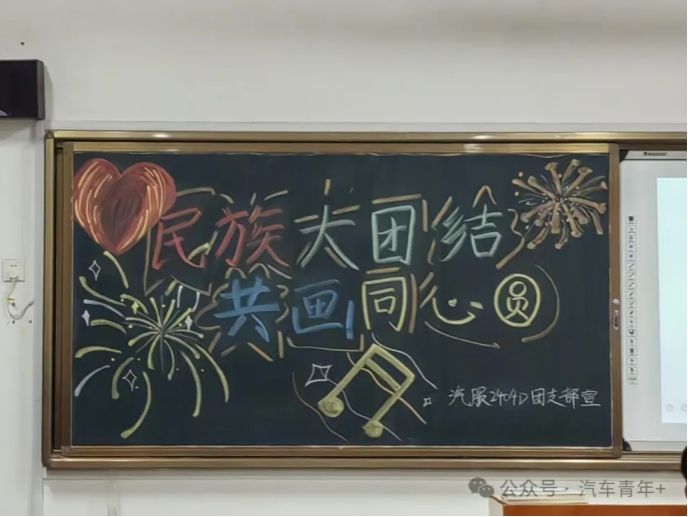 民族大团结
共画同心圆
汽服2404D团支部宣
公众号·汽车青年+